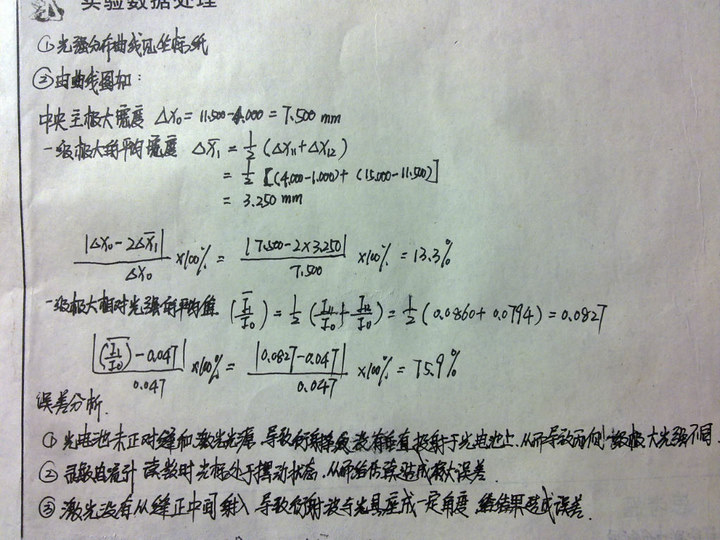 实验数据处理
①光强分布曲线见坐标纸
②由曲线图知:
中央主极大宽度 ΔX₀ = 11.500-4.000 = 7.500 mm
一级极大的平均宽度 ΔX̄₁ = 1/2 (ΔX₁₁+ΔX₁₂)
= 1/2 [(4.000-1.000)+(15.000-11.500)]
= 3.250 mm
|ΔX₀-2ΔX̄₁| / ΔX₀ ×100% = |7.500-2×3.250| / 7.500 ×100% = 13.3%
一级极大相对光强的平均值 (I₁/I₀) = 1/2 (I₁₁/I₀ + I₁₂/I₀) = 1/2 (0.0860+0.0794) = 0.0827
|(I₁/I₀)-0.047| / 0.047 ×100% = |0.0827-0.047| / 0.047 ×100% = 75.9%
误差分析.
①光电池未正对缝和激光光源,导致衍射没有垂直投射于光电池上,从而导致两侧一级极大光强不同.
②灵敏电流计读数时光标处于摆动状态.从而给估读造成较大误差.
③激光没有从缝正中间射入,导致衍射波与光具座成一定角度,给结果造成误差.